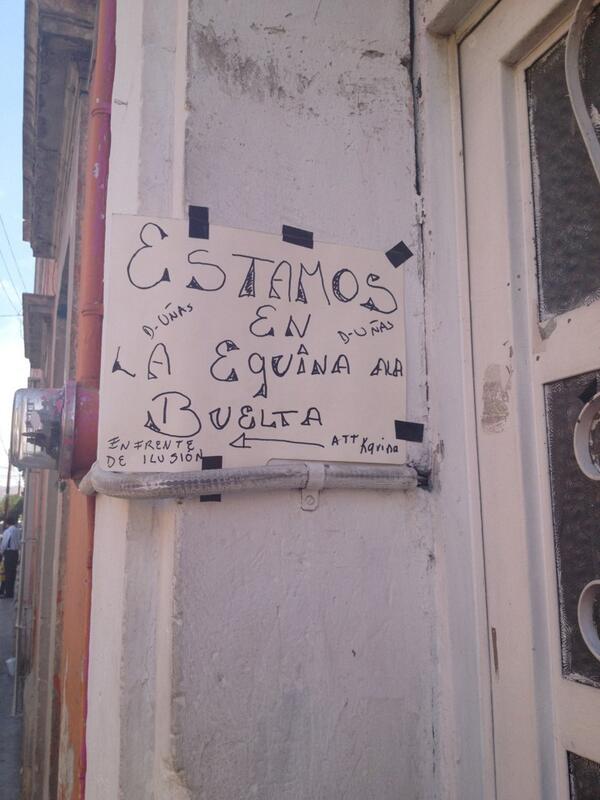 ESTAMOS
EN
D-UÑAS D-UÑAS
LA EqUINA ALA
BUELTA
ENFRENTE
DE ILUSIÓN
ATT Karina